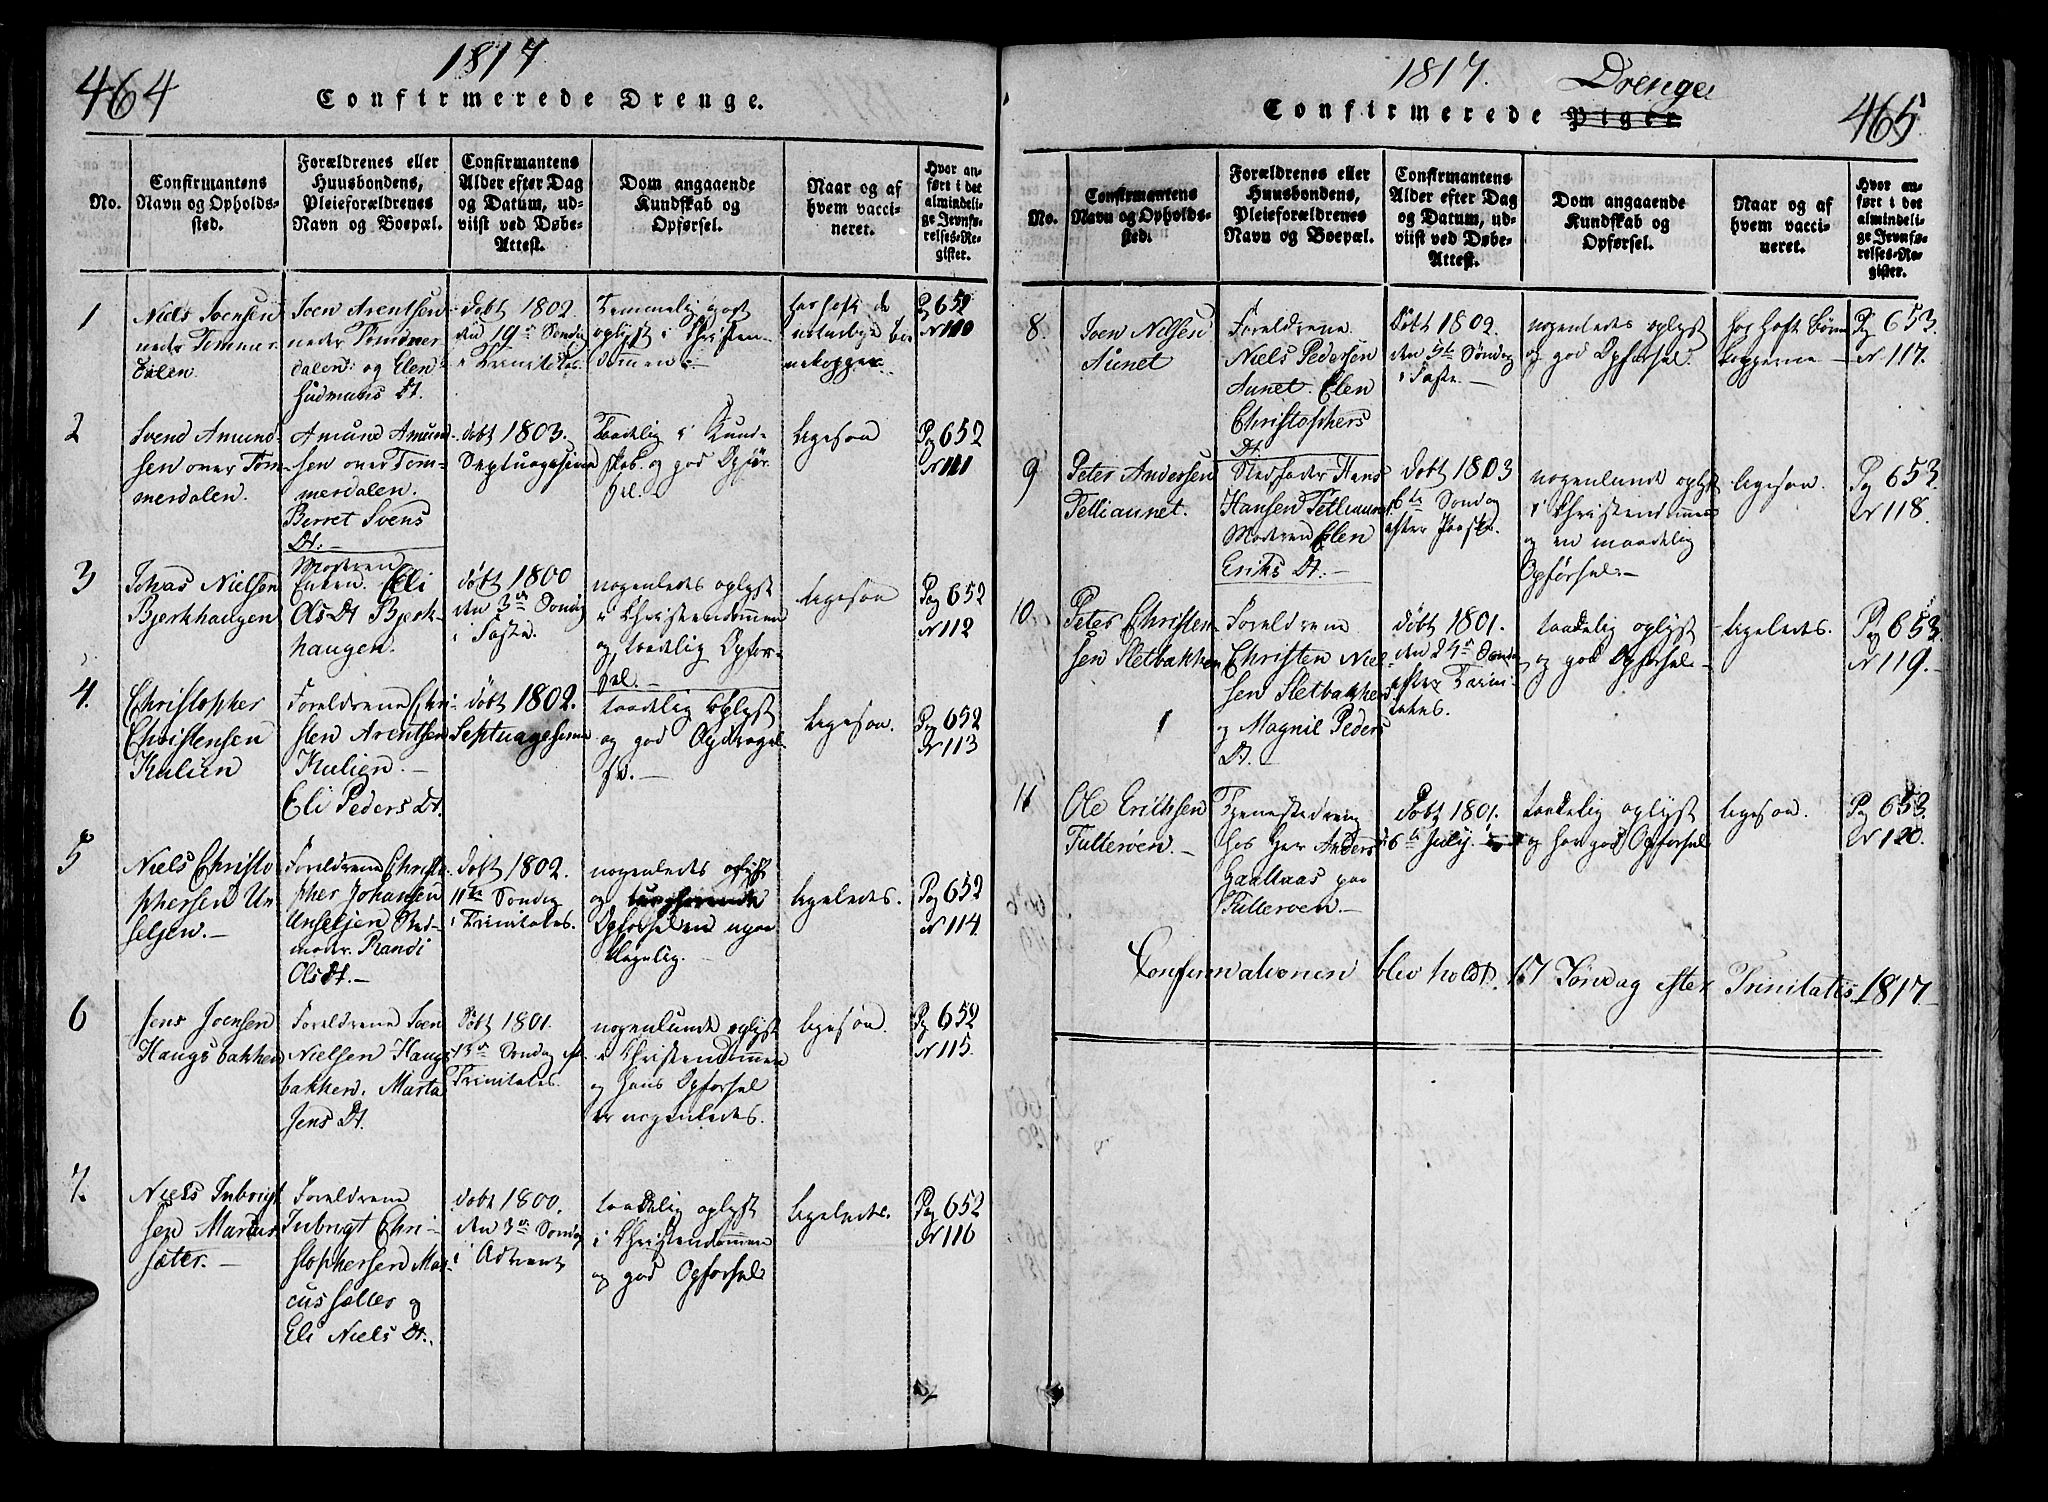 464
1817
Confirmerede Drenge.
No.
Confirmantens
Navn og Opholds-
sted.
Forældrenes eller
Huusbondens,
Pleieforældrenes
Navn og Boepæl.
Confirmantens
Alder efter Dag
og Datum, ud-
viist ved Døbe-
Attest.
Dom angaaende
Kundskab og
Opførsel.
Naar og af
hvem vacci-
neret.
Hvor an-
ført i det
almindeli-
ge Jevnfø-
relses-Re-
gister.
1
Niels Joensen
neder Tømmer
dalen.
Joen Arentsen
neder Tømmer
dalen og Elen
Gudmans Dt.
døbt 1802
den 19de Søndag
Temmelig godt
oplyst i Christen-
dommen
har haft de
naturlige bør
nekopper
Pag 652
N 110
2
Svend Amund-
sen over Tøm-
merdalen.
Amund Amund
sen over Tom-
merdalen.
Berret Svens
Dt.
døbt 1803.
Septuagesima
Taadelig i Kund-
skab og god Opfør-
sel.
ligesaa
Pag 652
N 111
3
Johas Nielsen
Bjerkhaugen
Moderen
Enken Eli
Ols Dt Bjerk-
haugen.
døbt 1800
den 3die Søndag
i Faste.
nogenledes oplyst
i Christendommen
og taadelig Opfør-
sel.
ligesaa
Pag 652
N 112
4.
Christopher
Christensen
Kulien
Foreldrene Chri-
sten Arentsen
Kulien.
Eli Peders Dt.
døbt 1802.
Septuagesima
taadelig oplyst
og god Opdragel
se.
ligesaa.
Pag 652
N 113
5
Niels Christo
phersen Un-
seljen.
Foreldrene Christo
pher Johansen
Unseljen Sted-
moder Randi
Ols Dt.
døbt 1802.
11te Søndag
i Trinitates.
nogenledes oplyst
og
Opførselen upaa
klagelig.
ligeledes.
Pag 652
N 114
6
Jens Joensen
Haugsbakken
Foreldrene Joen
Nielsen Haugs
bakken. Marta
Jens Dt.
Døbt 1801.
13de Søndag ef.
Trinitates.
nogenlunde oplyst
i Christendommen
og hans Opførsel
er nogenledes.
ligesaa.
Pag 652
N 115.
7.
Niels Inbrigt
sen Marcus
sæter.
Foreldrene
Inbrigt Chri-
stophersen Mar-
cussætter og
Eli Niels Dt.
døbt 1800.
den 3die Søndag
i Advent
taadelig oplyst
i Christendommen
og god Opførsel
ligeledes.
Pag 652
N 116
1817. Drenge
Confirmerede Piger
465
No.
Confirmantens
Navn og Opholds-
sted.
Forældrenes eller
Huusbondens,
Pleieforældrenes
Navn og Boepæl.
Confirmantens
Alder efter Dag
og Datum, ud-
viist ved Døbe-
Attest.
Dom angaaende
Kundskab og
Opførsel.
Naar og af
hvem vacci-
neret.
Hvor an-
ført i det
almindeli-
ge Jevnfø-
relses-Re-
gister.
8.
Joen Nilsen
Aunet
Foreldrene
Niels Pedersen
Aunet. Elen
Christophers
Dt.
Døbt 1802.
den 5te Søndag
i Faste.
nogenledes oplyst
og god Opførsel.
har haft børne
kopperne
Pag 653.
N. 117.
9
Peter Andersen
Telliaunet.
Stedfader Hans
Hansen Telliaunet
Moderen Elen
Eriks Dt.
døbt 1803
6te Søndag
efter Paaske.
nogenlunde oplyst
i Christendommen
og en maadelig
Opførsel.
ligesaa.
Pag 653.
N 118.
10.
Peter Christen-
sen Sletbakken
Foreldrene
Christen Niel-
sen Sletbakken
og Magnil Peders
Dt.
døbt 1801.
den 24de Søndag
efter Trini
tates.
taadelig oplyst
og god Opførsel
ligeledes.
Pag 653.
N 119.
11
Ole Eriksen
Fulterøen.
Tjenestedreng
hos Herr Anders
Gaaltaas paa
Fulterøen.
Døbt 1801.
6te July.
taadelig oplyst
og har god Opførsel
ligesaa.
Pag 653.
N 120.
Confirmationen blev holdt. 17 Søndag efter Trinitatis 1817